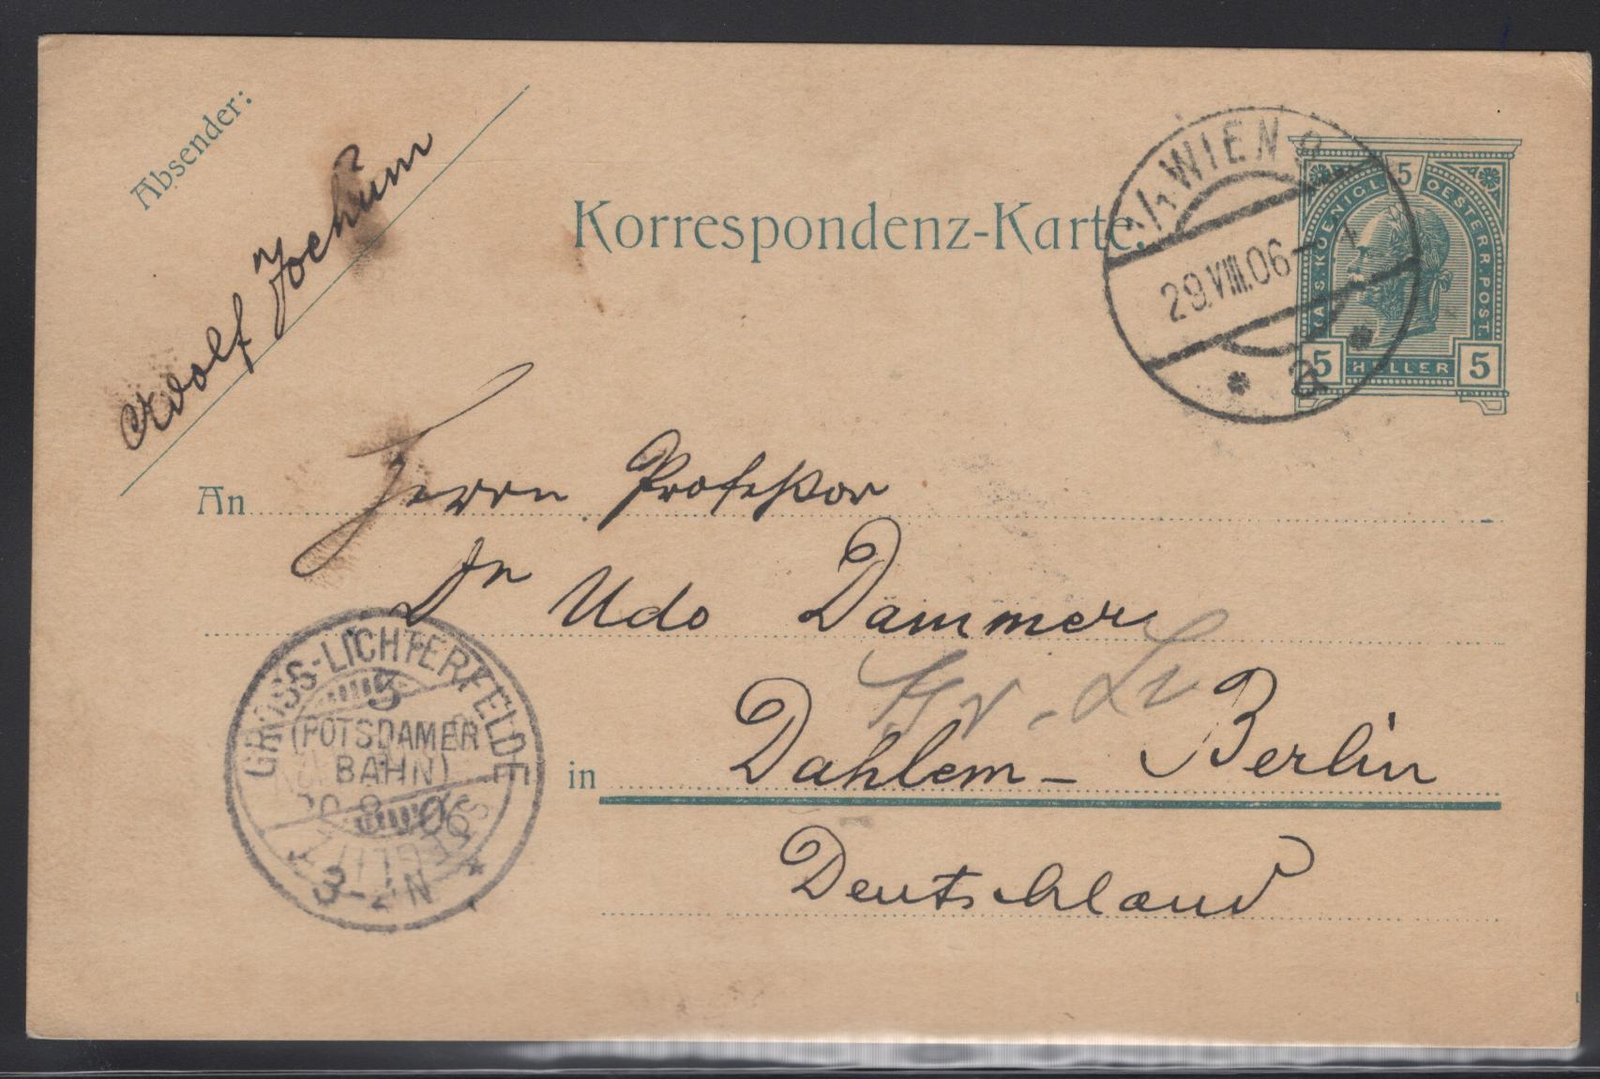 Absender:
Adolf Jochum
Korrespondenz-Karte.
1/1 WIEN
29.VIII.06
a
5
KAIS. KOENIGL. OESTERR. POST.
5 HELLER 5
An Herrn Professor
Dr Udo Dammer
Gr. - Li
in Dahlem - Berlin
Deutschland
GROSS-LICHTERFELDE
3
(POTSDAMER
BAHN)
8 06
3-4N